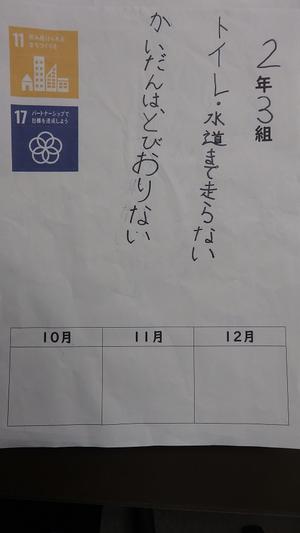 2年3組
トイレ・水道まで走らない
かいだんは、とびおりない
11 住み続けられる
まちづくりを
17 パートナーシップで
目標を達成しよう
10月 11月 12月